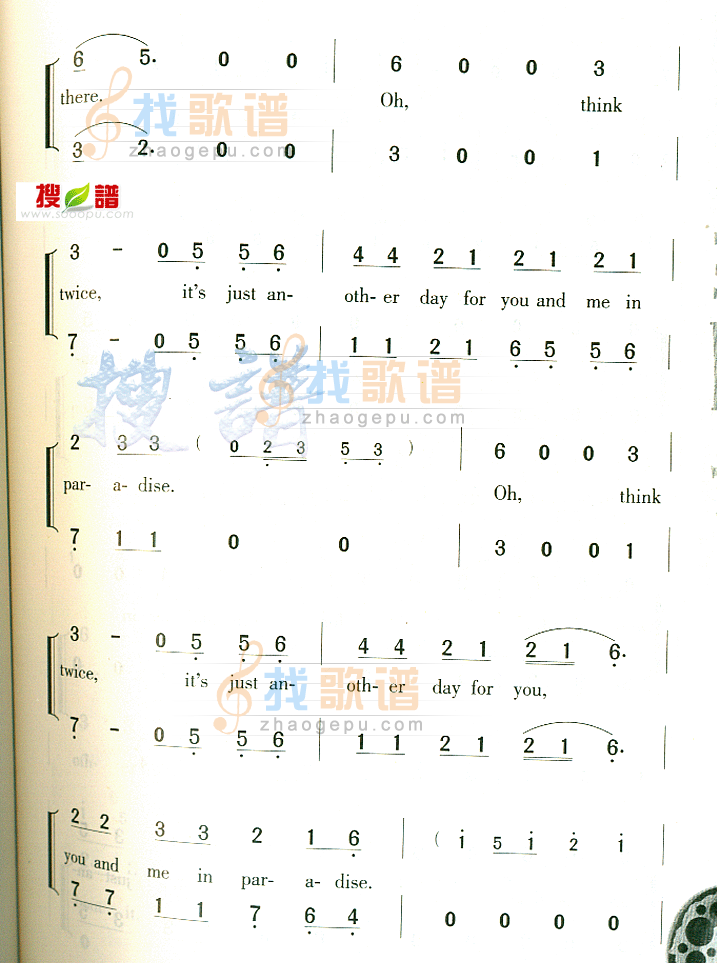 6 5. 0 0 | 6 0 0 3 |
there. Oh, think
3 2. 0 0 | 3 0 0 1
找歌谱
zhaogepu.com
搜譜
www.sooopu.com
3 - 0 5 5 6 | 4 4 2 1 2 1 2 1 |
twice, it's just an- oth- er day for you and me in
7 - 0 5 5 6 | 1 1 2 1 6 5 5 6
搜譜
找歌谱
zhaogepu.com
2 3 3 ( 0 2 3 5 3 ) | 6 0 0 3 |
par- a- dise. Oh, think
7 1 1 0 0 | 3 0 0 1 |
3 - 0 5 5 6 | 4 4 2 1 2 1 6. |
twice, it's just an- oth- er day for you,
找歌谱
zhaogepu.com
7 - 0 5 5 6 | 1 1 2 1 2 1 6. |
2 2 3 3 2 1 6 | ( i 5 i 2 i |
you and me in par- a- dise.
7 7 1 1 7 6 4 | 0 0 0 0 |